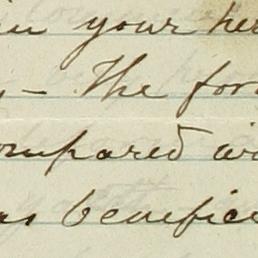 in your her
– The for
ompared wi
as benefice